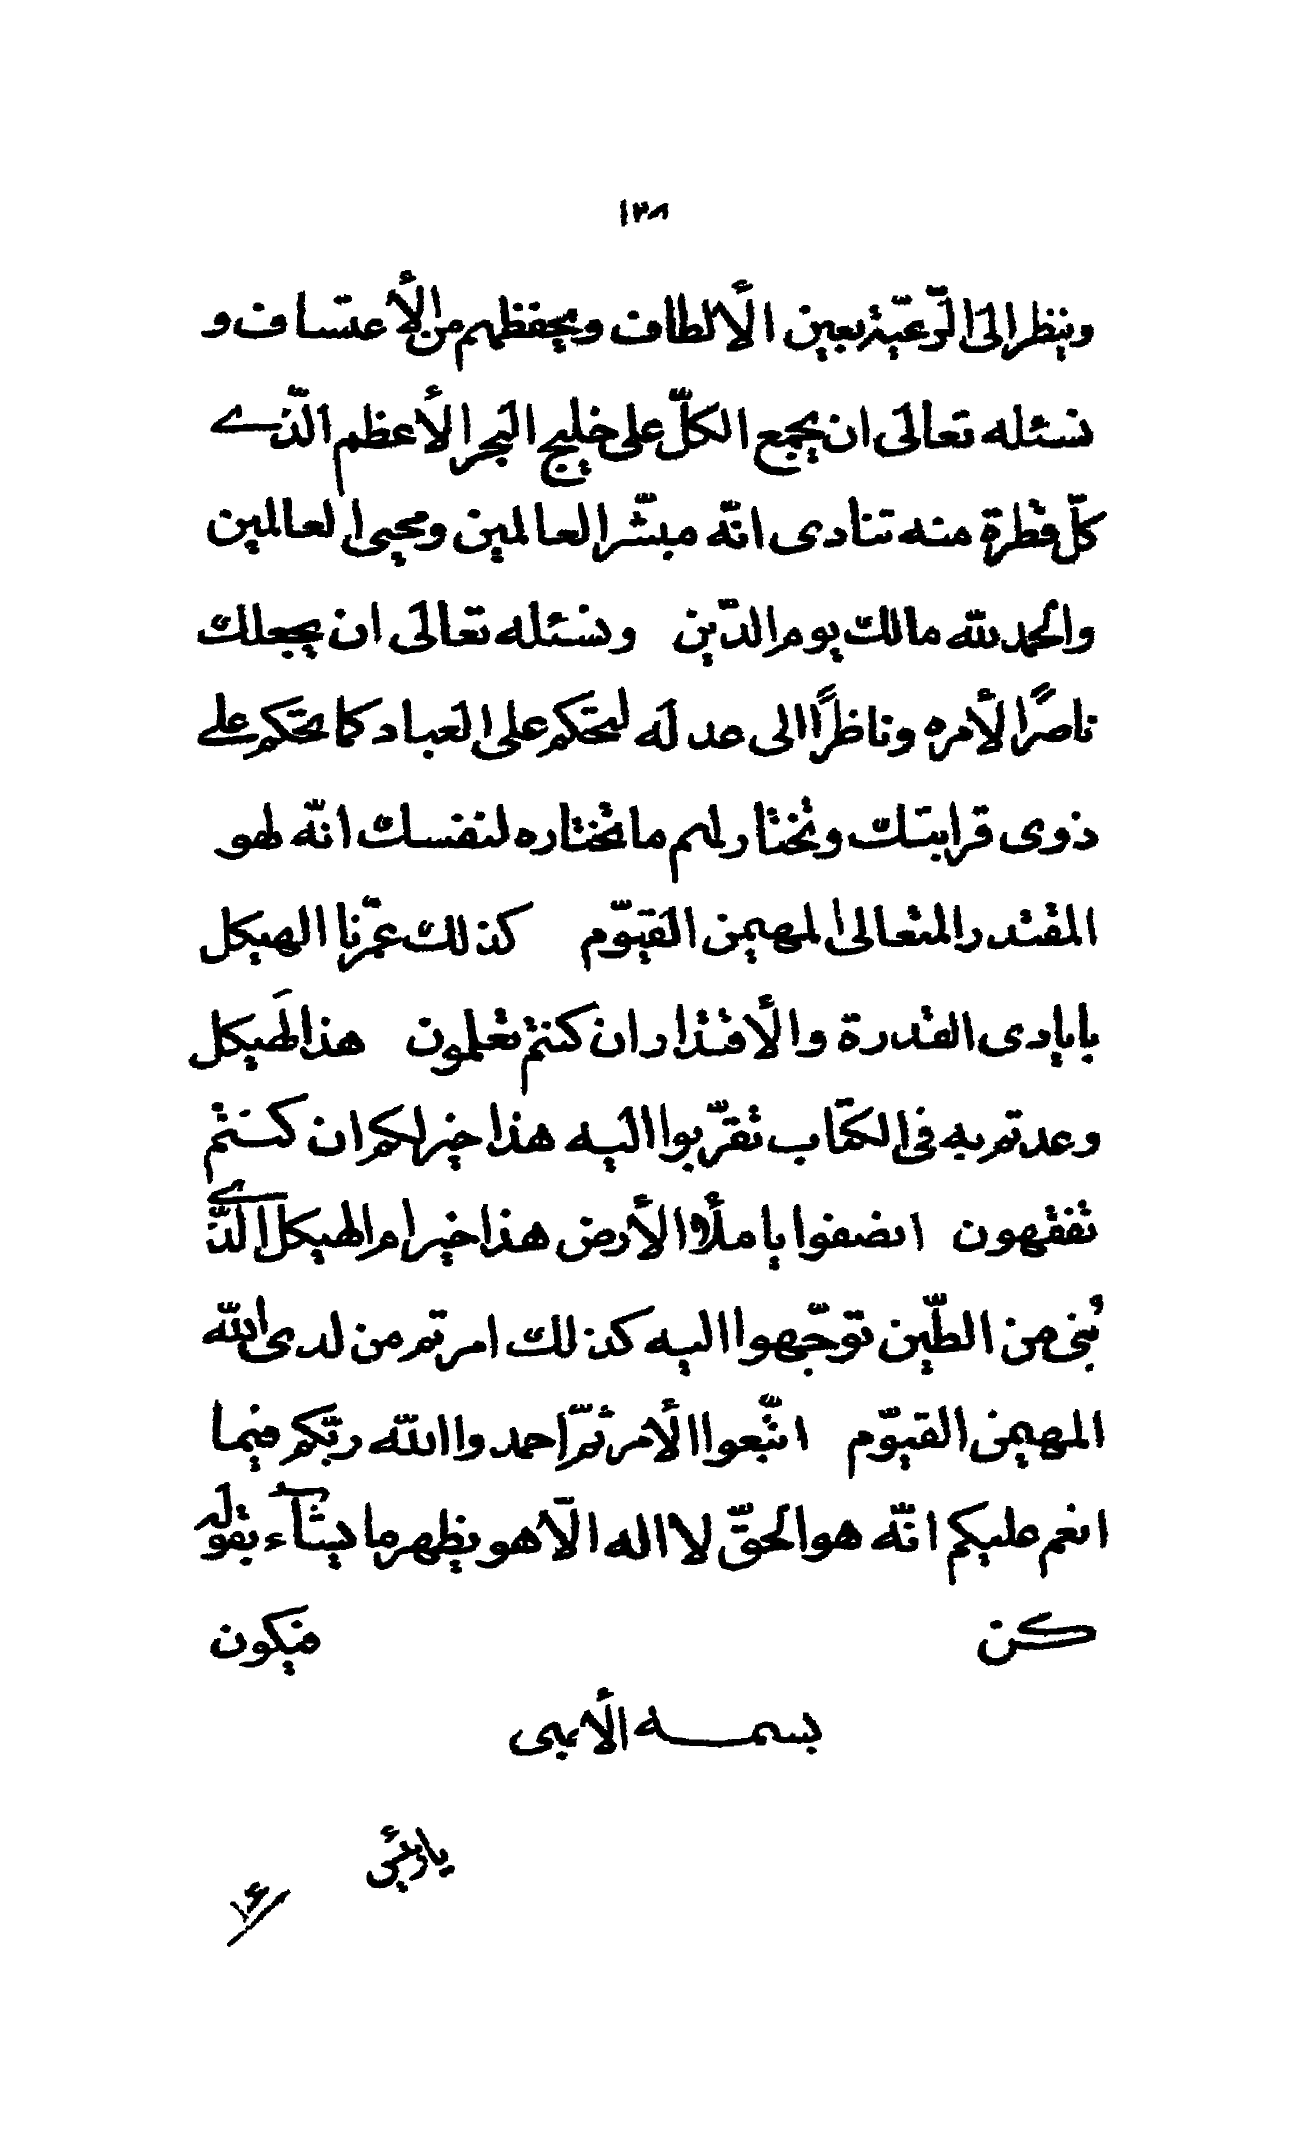 ١٣٨
وينظر الى الرّعيّة بعين الألطاف ويحفظهم من الأعتساف و
نسئله تعالى ان يجمع الكلّ على خليج البحر الأعظم الّذى
كلّ قطرة منه تنادى انّه مبشّر العالمين ومحيى العالمين
والحمد لله مالك يوم الدّين ونسئله تعالى ان يجعلك
ناصرًا لأمره وناظرًا الى عدله لتحكم على العباد كما تحكم على
ذوى قرابتك وتختار لهم ما تختاره لنفسك انّه لهو
المقتدر المتعالى المهيمن القيّوم كذلك عمّرنا الهيكل
بايادى القدرة والأقتدار ان كنتم تعلمون هذا لهيكل
وعدتم به فى الكتاب تقرّبوا اليه هذا خير لكم ان كنتم
تفقهون انصفوا يا ملأ الأرض هذا خير ام الهيكل الّذى
بُنى من الطّين توجّهوا اليه كذلك امرتم من لدى الله
المهيمن القيّوم اتّبعوا الأمر ثمّ احمدوا الله ربّكم فيما
انعم عليكم انّه هو الحقّ لا اله الّا هو يظهر ما يشآء بقوله
كن فيكون
بسمه الأبهى